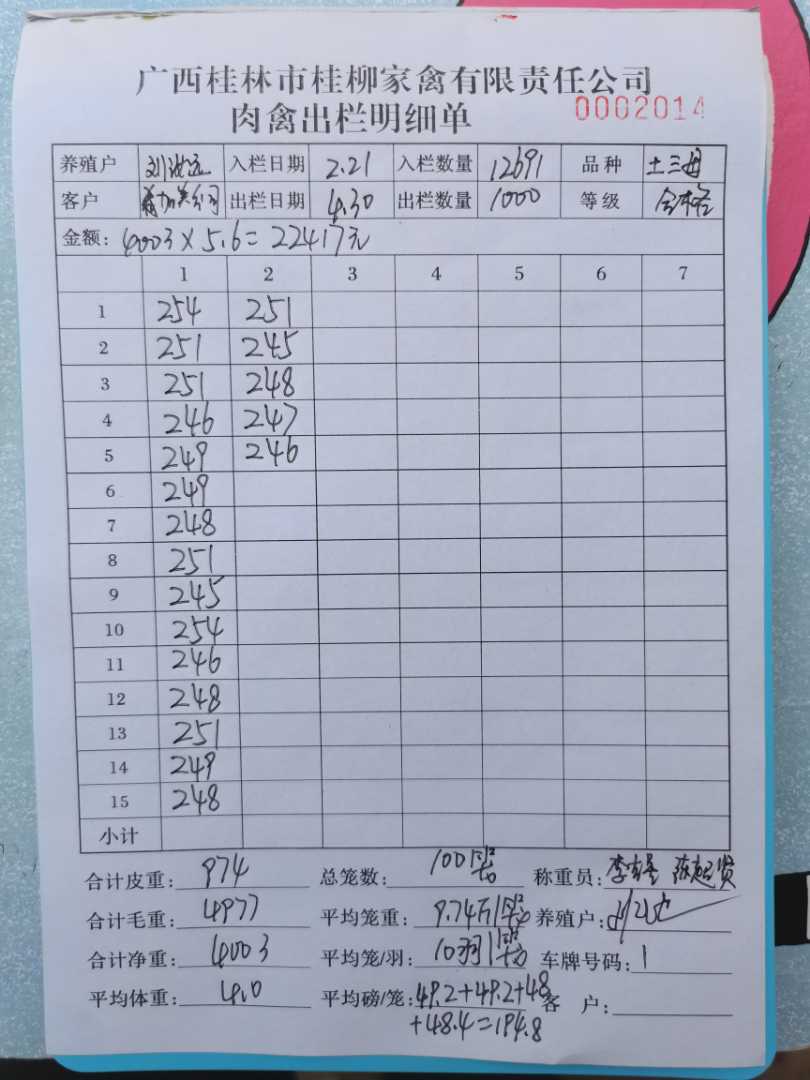 广西桂林市桂柳家禽有限责任公司
肉禽出栏明细单 0002014
养殖户 入栏日期 2.21 入栏数量 12691 品种 土三母
客户 公司 出栏日期 4.30 出栏数量 1000 等级 合格
金额: 4003×5.6=22417元
1 2 3 4 5 6 7
1 254 251
2 251 245
3 251 248
4 246 247
5 249 246
6 249
7 248
8 251
9 245
10 254
11 246
12 248
13 251
14 249
15 248
小计
合计皮重: 974 总笼数: 100 称重员:
合计毛重: 4977 平均笼重: 9.74斤/ 养殖户:
合计净重: 4003 平均笼/羽: 10羽/ 车牌号码: 1
平均体重: 4.0 平均磅/笼: 49.2+49.2+48 客户:
+48.4=194.8